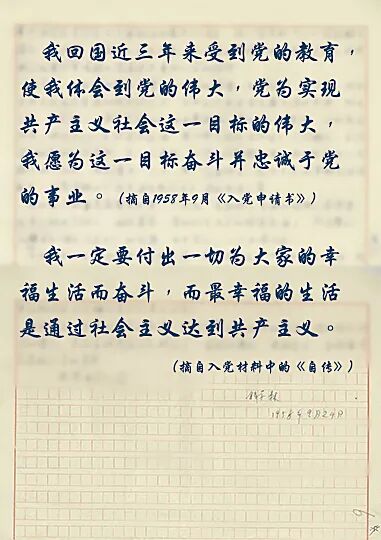 我回国近三年来受到党的教育，
使我体会到党的伟大，党为实现
共产主义社会这一目标的伟大，
我愿为这一目标奋斗并忠诚于党
的事业。（摘自1958年9月《入党申请书》）
我一定要付出一切为大家的幸
福生活而奋斗，而最幸福的生活
是通过社会主义达到共产主义。
（摘自入党材料中的《自传》）
1958年9月24日